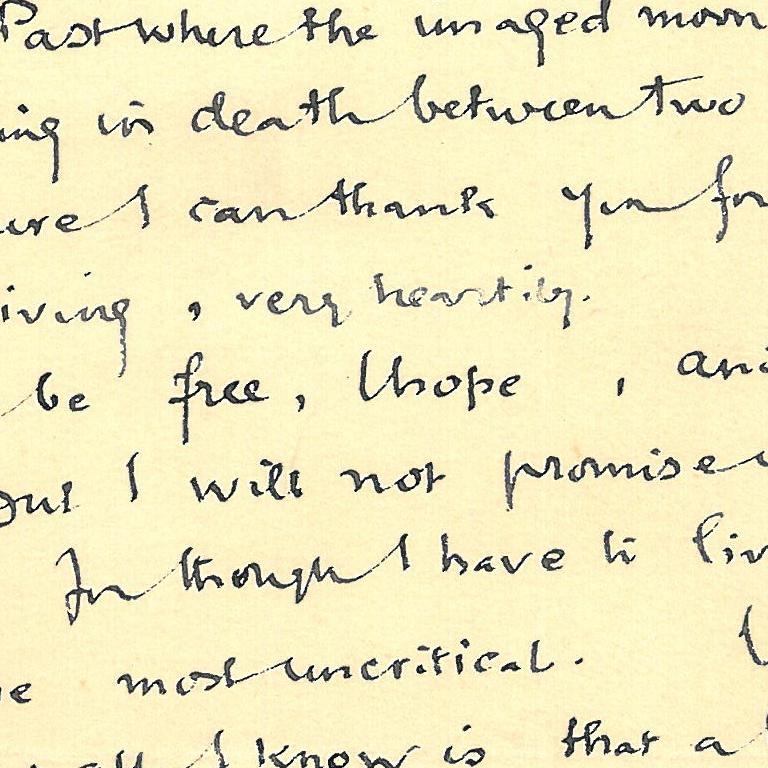 Past where the unaged moon
ing in death between two
ure I can thank you for
iving, very heartily.
be free, I hope, and
but I will not promise
For though I have to liv
e most uncritical.
all I know is that a